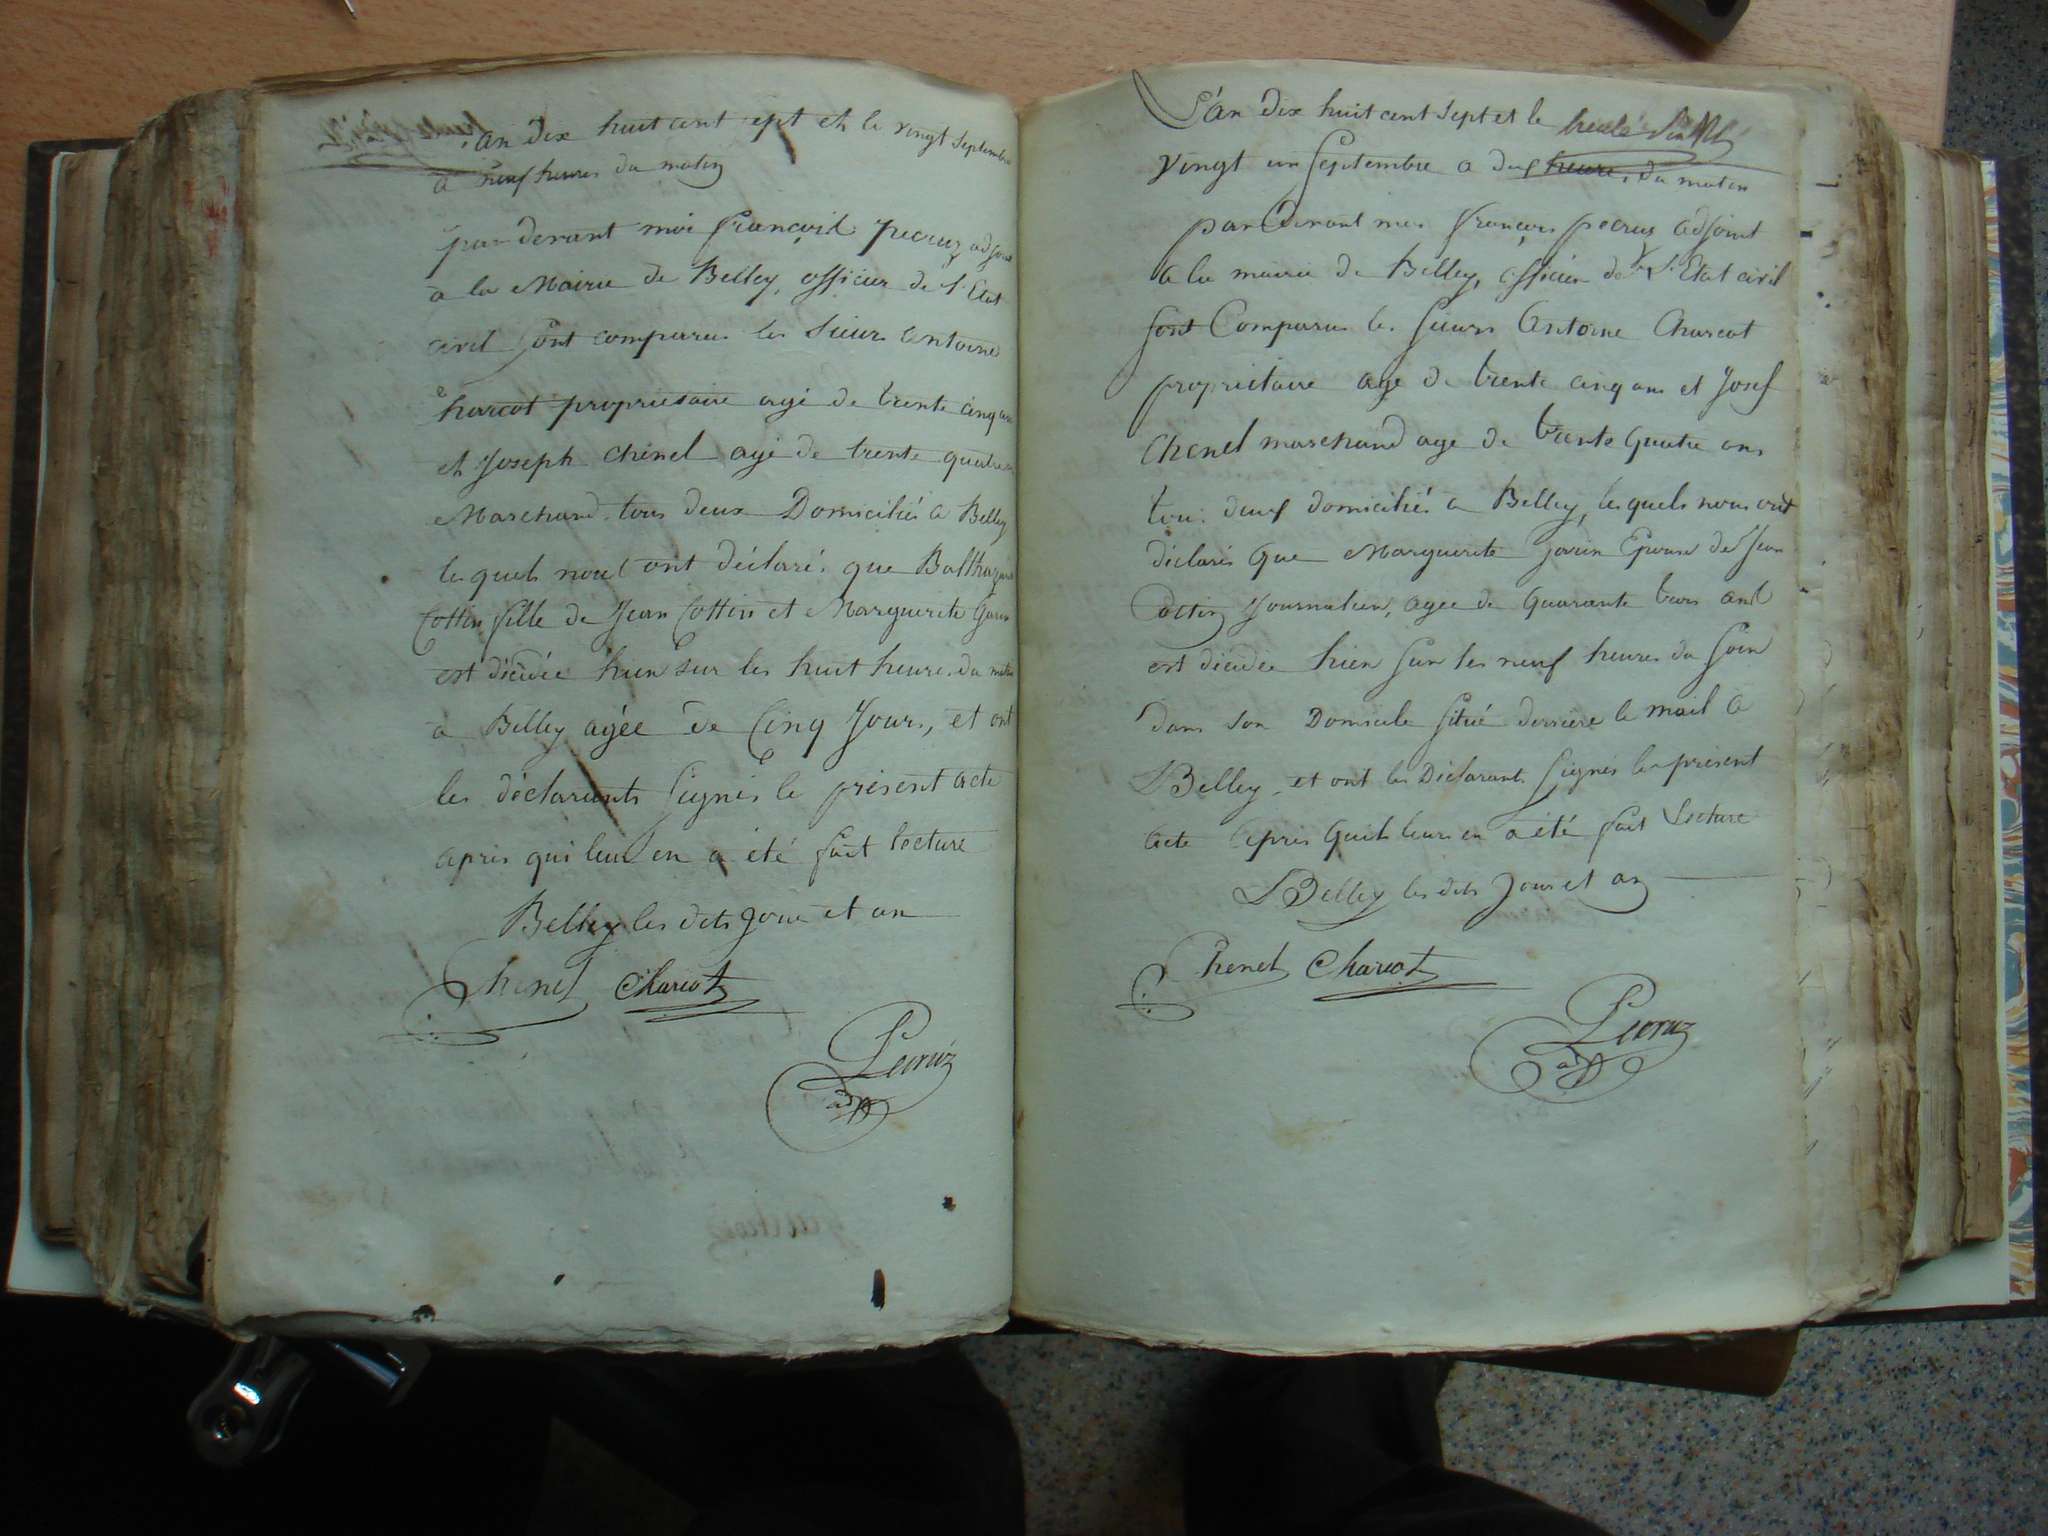 L'an dix huit cent sept et le vingt Septembre
à neuf heures du matin
par devant moi françois pecruz adjoint
à la Mairie de Belley, officier de l'Etat
civil sont comparus les sieurs antoine
charcot propriétaire agé de trente cinq ans
et Joseph chenel agé de trente quatre
Marchand tous deux Domiciliés a Belley
les quels nous ont déclaré que Balthazard
Cottin fille de Jean Cottin et Marguerite Garin
est décédée hier sur les huit heures du matin
à Belley agée de Cinq Jours, et ont
les déclarants signés le présent acte
apris qui leur en a été fait lecture
Belley les dits jour et an
Chenel Charcot
Pecruz
adjt
L'an dix huit cent sept et le
vingt un septembre a dix heures du matin
par devant moi françois pecruz adjoint
a la mairie de Belley, officier de l'Etat civil
sont Comparus les sieurs Antoine Charcot
propriétaire agé de trente cinq ans et Josef
Chenel marchand age de trente quatre ans
tous deux domiciliés a Belley, lesquels nous ont
déclarés que Marguerite Garin Epouse de Jean
Cottin Journalier, agee de quarante trois ans
est décédée hier sur les neuf heures du soir
dans son Domicile situé derrière le mail a
Belley et ont les Déclarants signés le présent
acte apris quils leurs en a été fait Lecture
Belley les dits Jour et an
Chenel Charcot
Pecruz
adjt